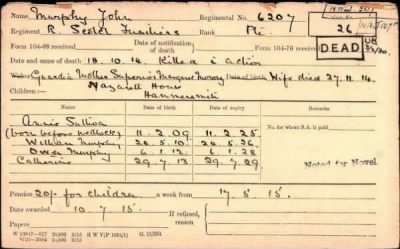 Name Murphy John Regimental No. 6207
Regiment R. Scots Fusiliers Rank Pte 26
Form 104-88 received Date of notification of death Form 104-76 received DEAD
Date and cause of death 18.10.14. Killed in action
Guardian Mother Superior Margaret Date of birth Wife died 27.11.14.
Nazareth House
Children:— Hammersmith
Date of birth Date of expiry
Annie Sullivan
(born before wedlock) 11.2.09. 11.2.25. No. for whom S.A. is paid
William Murphy 24.5.10. 24.5.26.
Owen Murphy 6.1.12. 6.1.28.
Catherine 29.7.13 29.7.29. Noted for Novel
Pension 20/- for children a week from 17.5.15.
Date awarded 10.7.15. If refused, reason
Papers